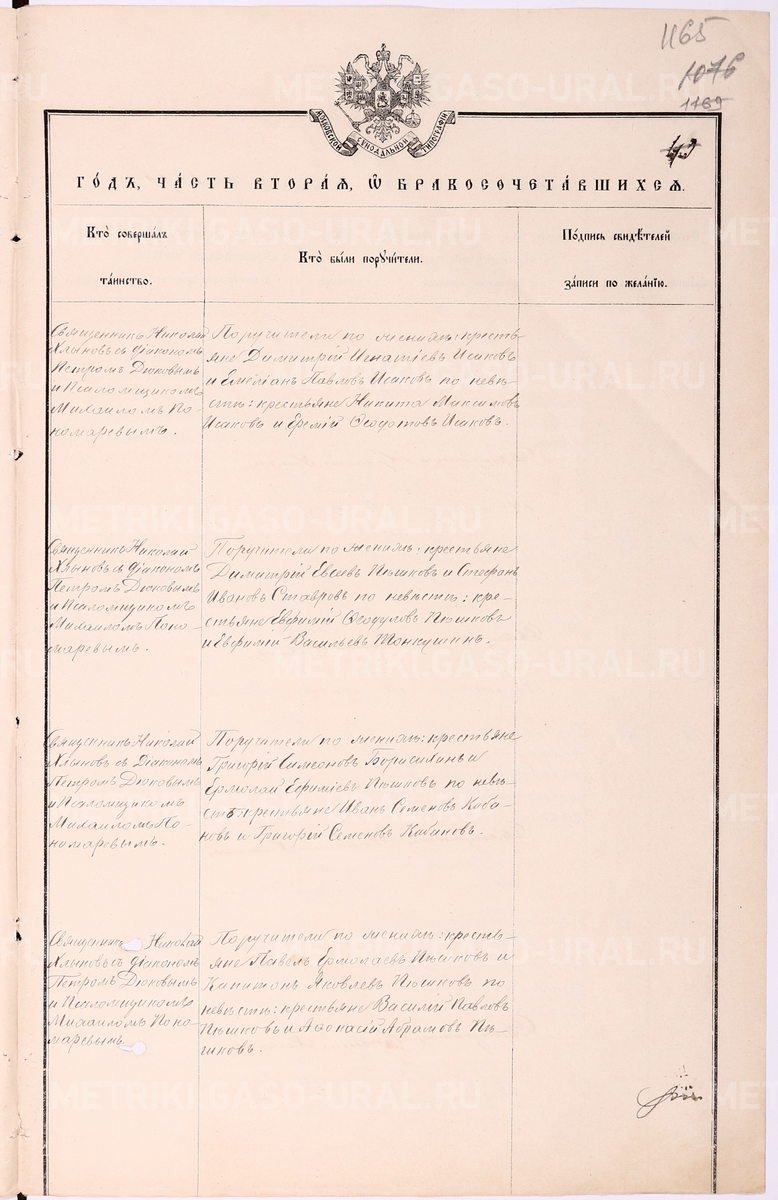 1165
1076
1169
МОСКОВСКОЙ СѴНОДАЛЬНОЙ ТИПОГРАФІИ
ГО́ДЪ, ЧА́СТЬ ВТОРА́Я, Ѽ БРАКОСОЧЕТА́ВШИХСЯ.
Кто̀ соверша́лъ
та́инство.
Кто̀ бы́ли порꙋчи́тели.
По́дпись свидѣ́телей
за́писи по жела́нїю.
Священникъ Николай
Хлыновъ съ діакономъ
Петромъ Дюковымъ
и Псаломщикомъ
Михаиломъ По-
номаревымъ.
Поручители по женихѣ: кресть-
яне Димитрій Игнатіевъ Исаковъ
и Емеліанъ Павловъ Исаковъ по невѣ-
стѣ: крестьяне Никита Максимовъ
Исаковъ и Еремій Ѳеодотовъ Исаковъ.
Священникъ Николай
Хлыновъ съ діакономъ
Петромъ Дюковымъ
и Псаломщикомъ
Михаиломъ Поно-
маревымъ.
Поручители по женихѣ: крестьяне
Димитрій Евсеевъ Пѣшковъ и Стефанъ
Ивановъ Ставровъ по невѣстѣ: кре-
стьяне Евфимій Ѳеодуловъ Пѣшковъ
и Евфимій Васильевъ Тонкушинъ.
Священникъ Николай
Хлыновъ съ Діакономъ
Петромъ Дюковымъ
и Псаломщикомъ
Михаиломъ По-
номаревымъ.
Поручители по женихѣ: крестьяне
Григорій Симеоновъ Борисихинъ и
Ермолай Ефиміевъ Пѣшковъ по невѣ-
стѣ: крестьяне Иванъ Семеновъ Каба-
новъ и Григорій Семеновъ Кабановъ.
Священникъ Николай
Хлыновъ съ діакономъ
Петромъ Дюковымъ
и Псаломщикомъ
Михаиломъ Поно-
маревымъ
Поручители по женихѣ: кресть-
яне Павелъ Ермолаевъ Пѣшковъ и
Капитонъ Яковлевъ Пѣшковъ по
невѣстѣ: крестьяне Василій Павловъ
Пѣшковъ и Аѳонасій Абрамовъ Пѣ-
шковъ.
METRIKI.GASO-URAL.RU